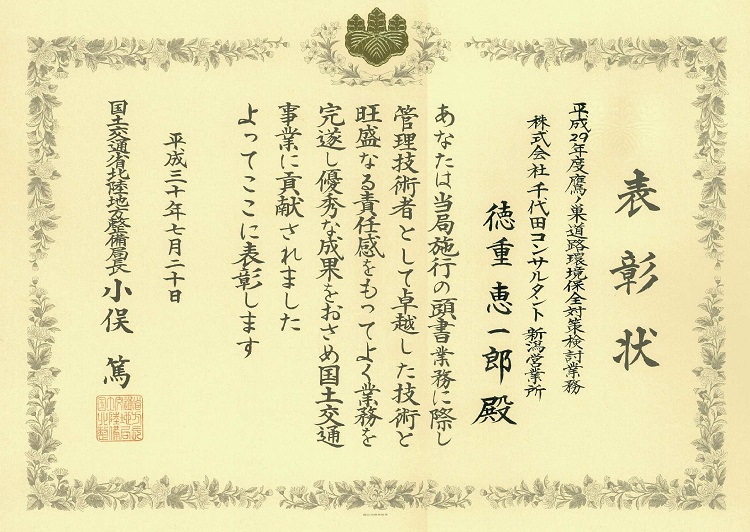 表彰状
平成29年度鷹ノ巣道路環境保全対策検討業務
株式会社 千代田コンサルタント 新潟営業所
徳重恵一郎殿
あなたは当局施行の頭書業務に際し
管理技術者として卓越した技術と
旺盛なる責任感をもってよく業務を
完遂し優秀な成果をおさめ国土交通
事業に貢献されました
よってここに表彰します
平成三十年七月二十日
国土交通省北陸地方整備局長 小俣 篤